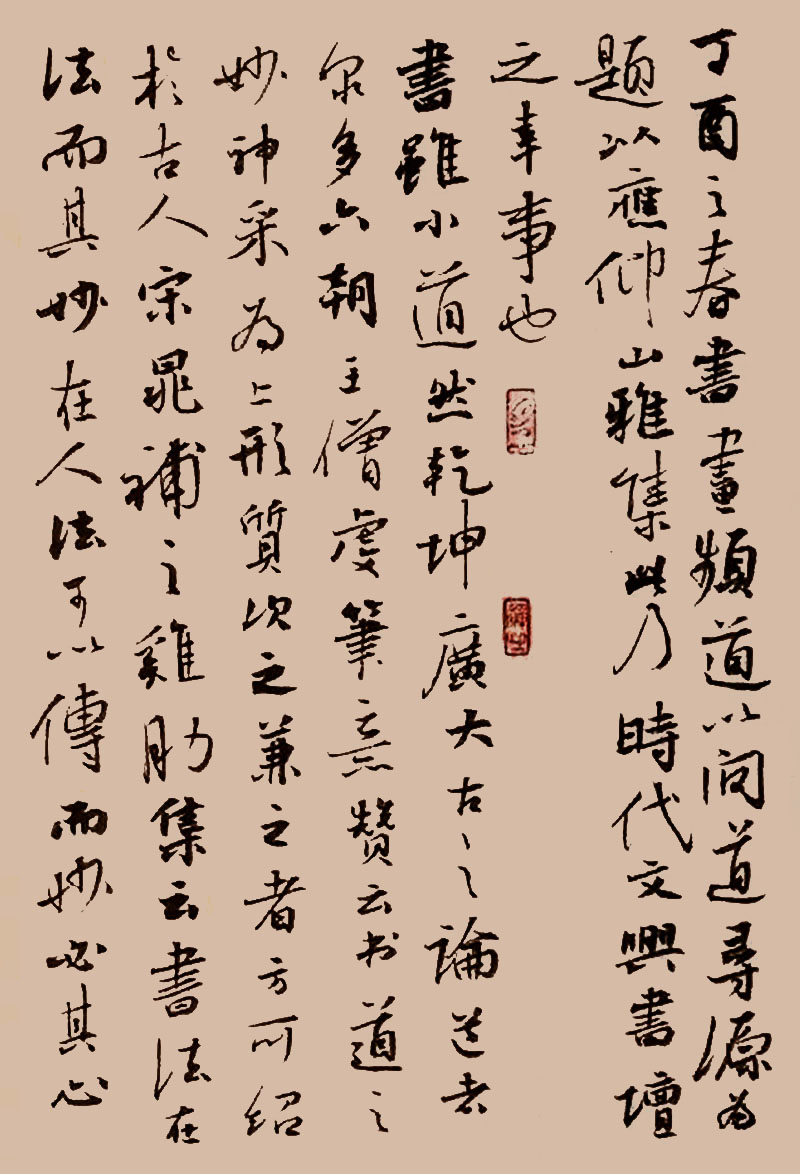 丁酉之春書畫頻道以问道尋源為
題以應仰山雅集此乃時代文興書壇
之幸事也
書雖小道然乾坤廣大古之論道者
眾多六朝王僧虔筆意贊云书道之
妙神采為上形質次之兼之者方可紹
於古人宋晁補之雞肋集云書法在
法而其妙在人法可以傳而妙必其心